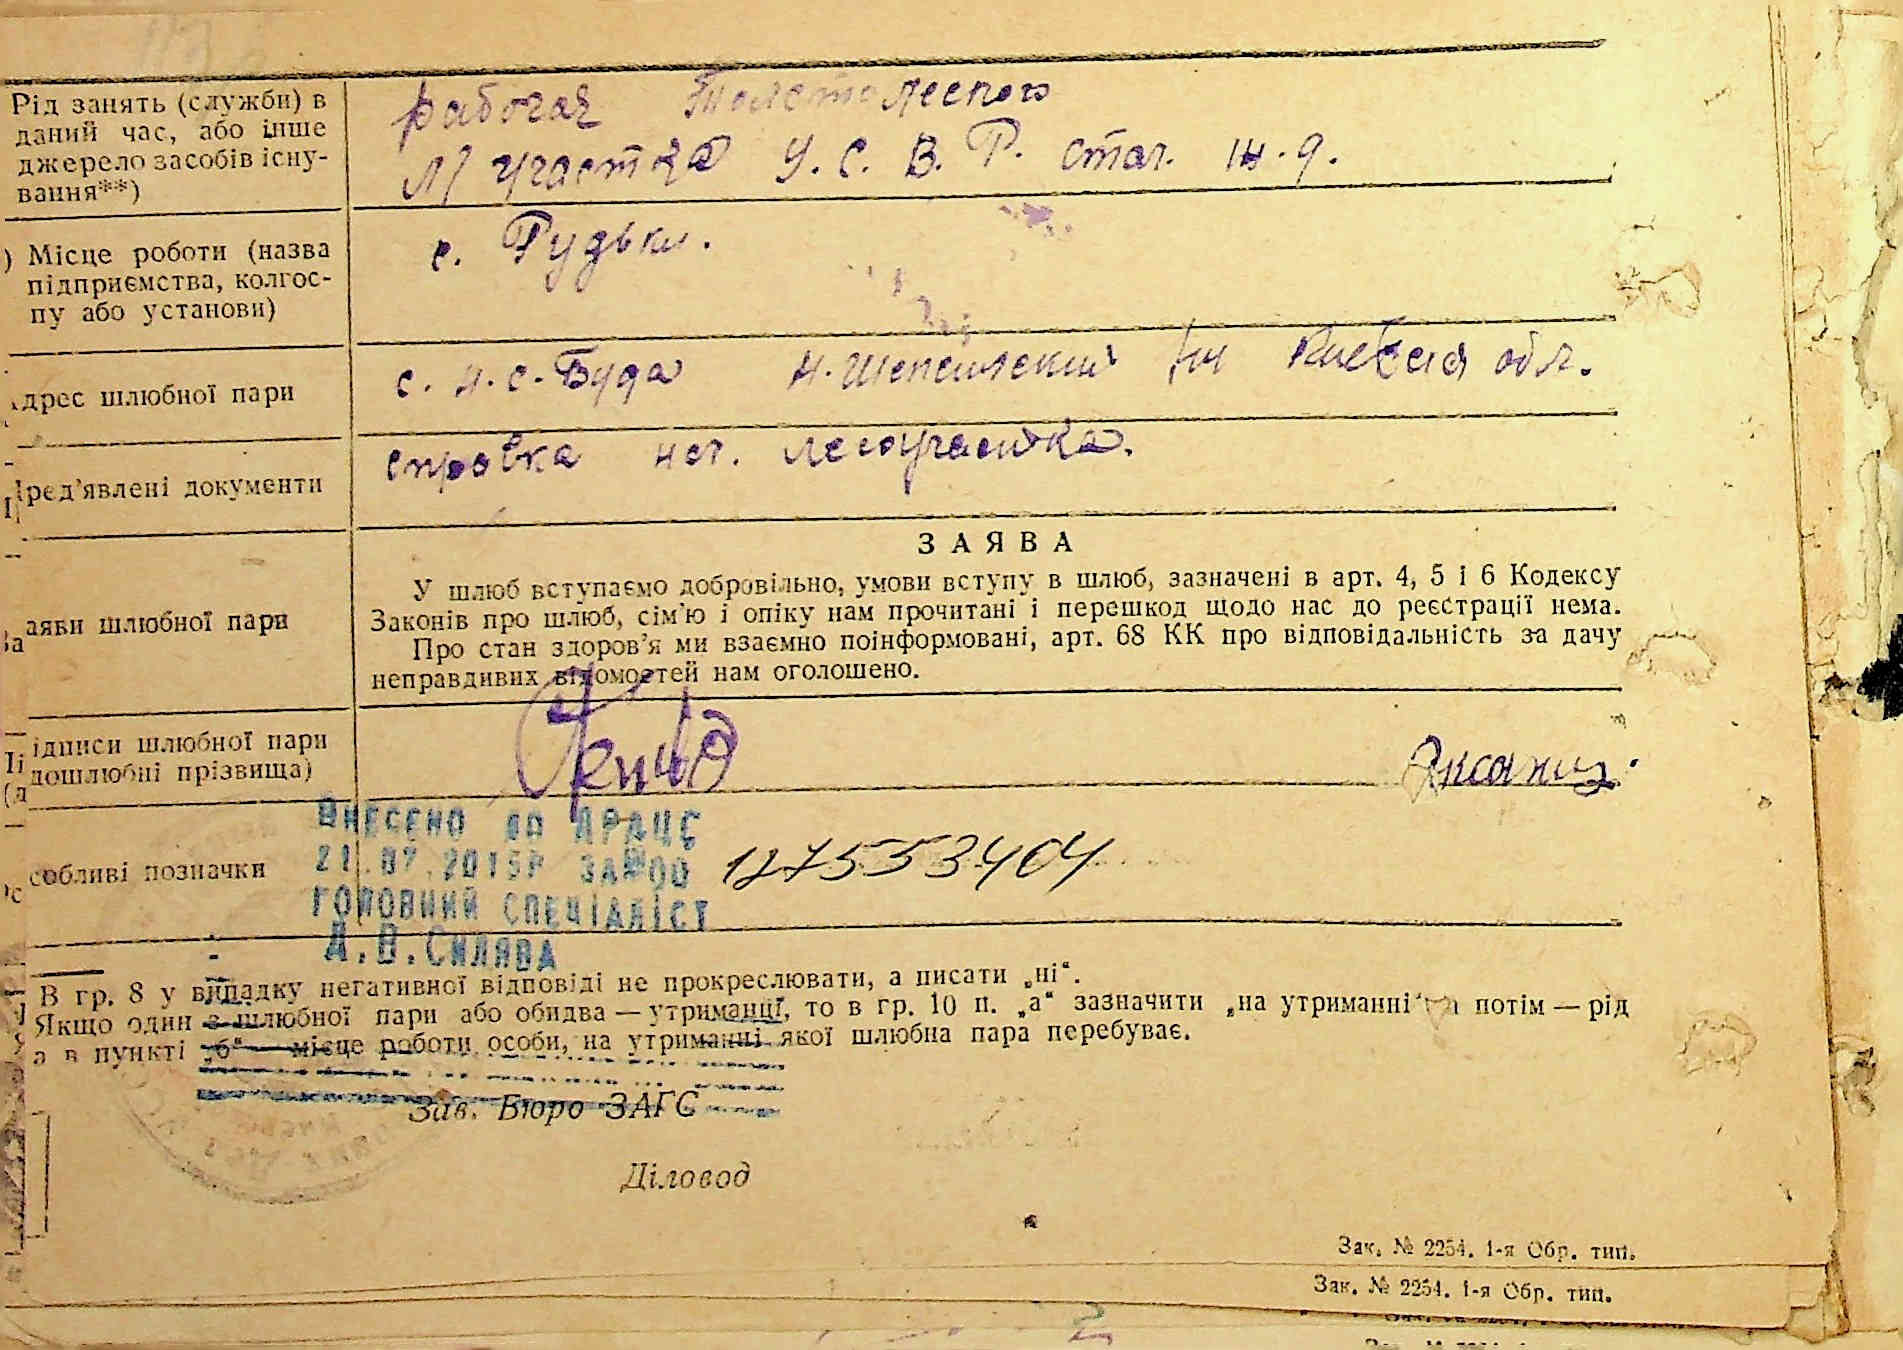 Рід занять (служби) в
даний час, або інше
джерело засобів існу-
вання**)
рабочая Толстолеского
Л/участка У. С. В. Р. стаг. ж. д.
) Місце роботи (назва
підприємства, колгос-
пу або установи)
с. Рудьки.
дрес шлюбної пари
с. Н. С. Буда Н. Шепеличский Киевская обл.
Пред'явлені документи
справка нач. лесоучастка.
аяви шлюбної пари
ЗАЯВА
У шлюб вступаємо добровільно, умови вступу в шлюб, зазначені в арт. 4, 5 і 6 Кодексу
Законів про шлюб, сім'ю і опіку нам прочитані і перешкод щодо нас до реєстрації нема.
Про стан здоров'я ми взаємно поінформовані, арт. 68 КК про відповідальність за дачу
неправдивих відомостей нам оголошено.
ідписи шлюбної пари
дошлюбні прізвища)
собливі позначки
ВНЕСЕНО ДО ДРАЦС
21.07.2015Р ЗА №00 127553404
ГОЛОВНИЙ СПЕЦІАЛІСТ
А.В.СИЛЯВА
В гр. 8 у випадку негативної відповіді не прокреслювати, а писати „ні“.
Якщо один з шлюбної пари або обидва — утриманці, то в гр. 10 п. „а“ зазначити „на утриманні“ а потім — рід
а в пункті „б“ — місце роботи особи, на утриманні якої шлюбна пара перебуває.
Зав. Бюро ЗАГС
Діловод
Зак. № 2254. 1-я Обр. тип.
Зак. № 2254. 1-я Обр. тип.